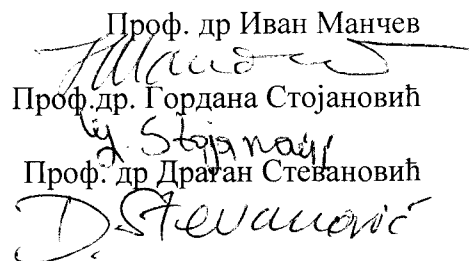 Проф. др Иван Манчев
Проф.др. Гордана Стојановић
Проф. др Драган Стевановић
D. Stevanović